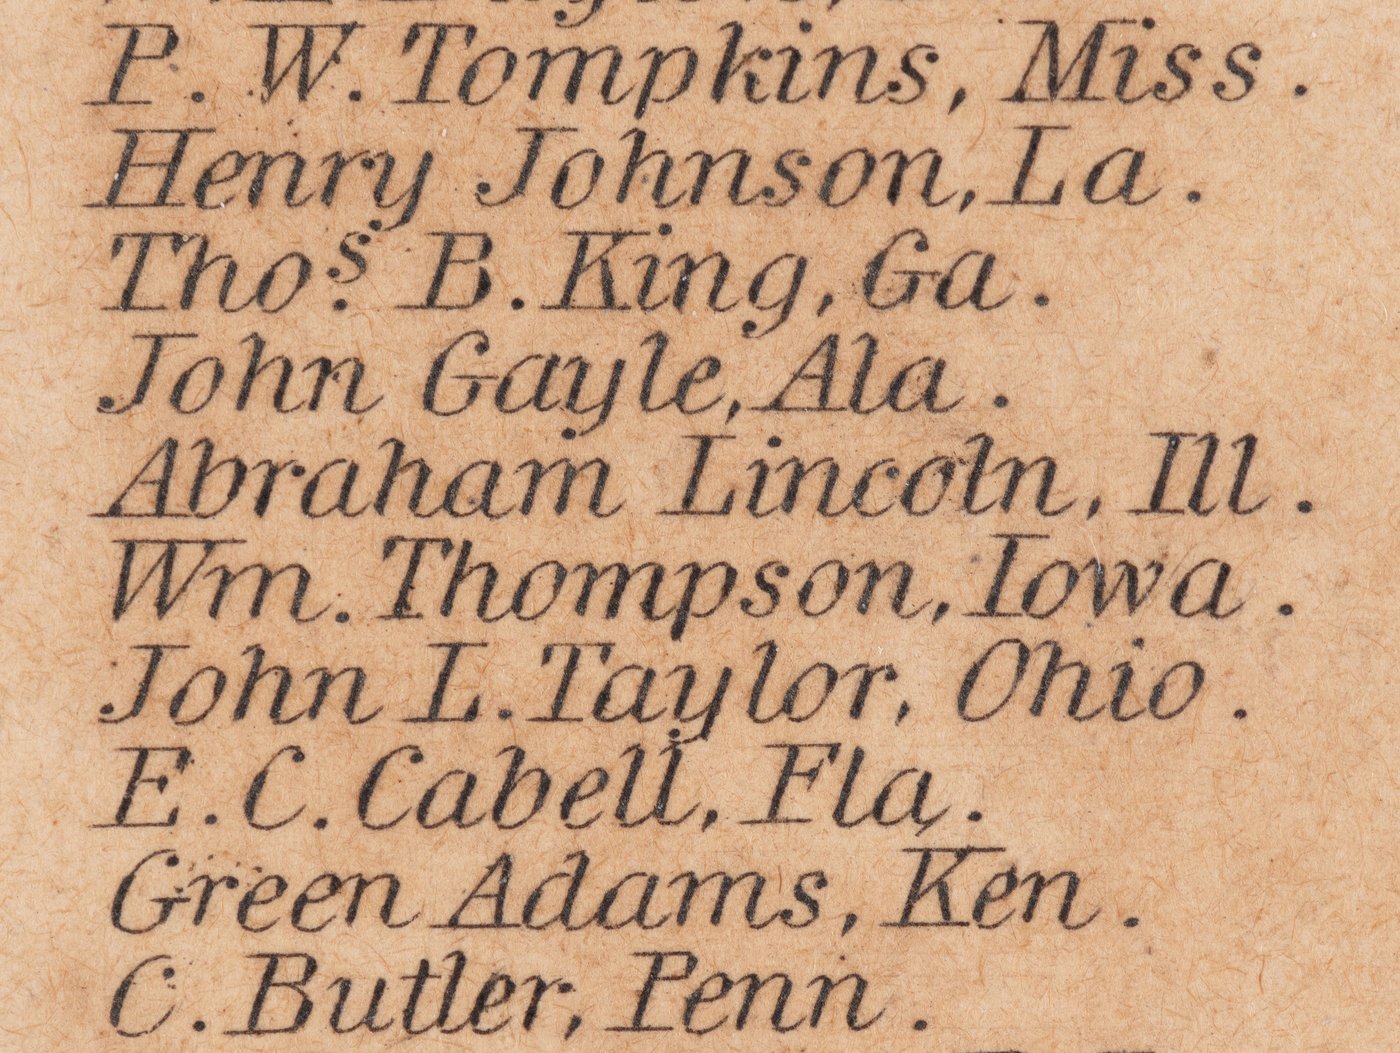 P. W. Tompkins, Miss.
Henry Johnson, La.
Thos. B. King, Ga.
John Gayle, Ala.
Abraham Lincoln, Ill.
Wm. Thompson, Iowa.
John L. Taylor, Ohio.
E. C. Cabell, Fla.
Green Adams, Ken.
C. Butler, Penn.